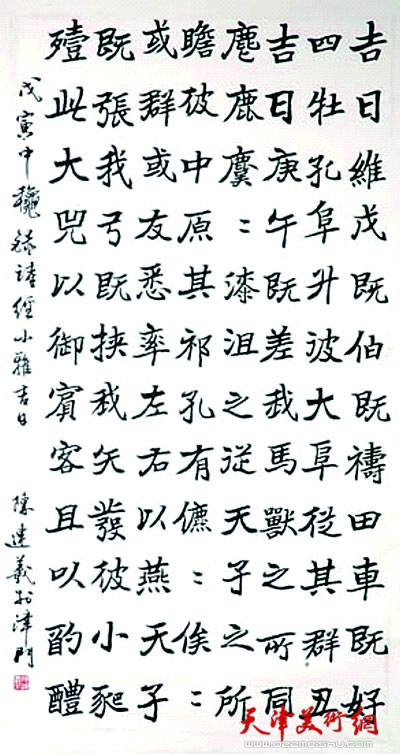 吉日維戊既伯既禱田車既好
四牡孔阜升彼大阜從其群丑
吉日庚午既差我馬獸之所同
麀鹿麌〻漆沮之從天子之所
瞻彼中原其祁孔有儦〻俟〻
或群或友悉率左右以燕天子
既張我弓既挾我矢發彼小豝
殪此大兕以御賓客且以酌醴
戊寅中龝錄詩經小雅吉日 陳達義於津門
天津美術網